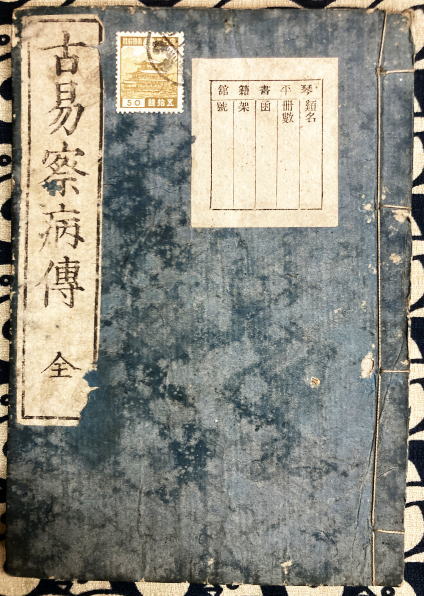 古易察病傳 全
50
五拾錢
琴平書籍館
類名
冊數
函
架
號